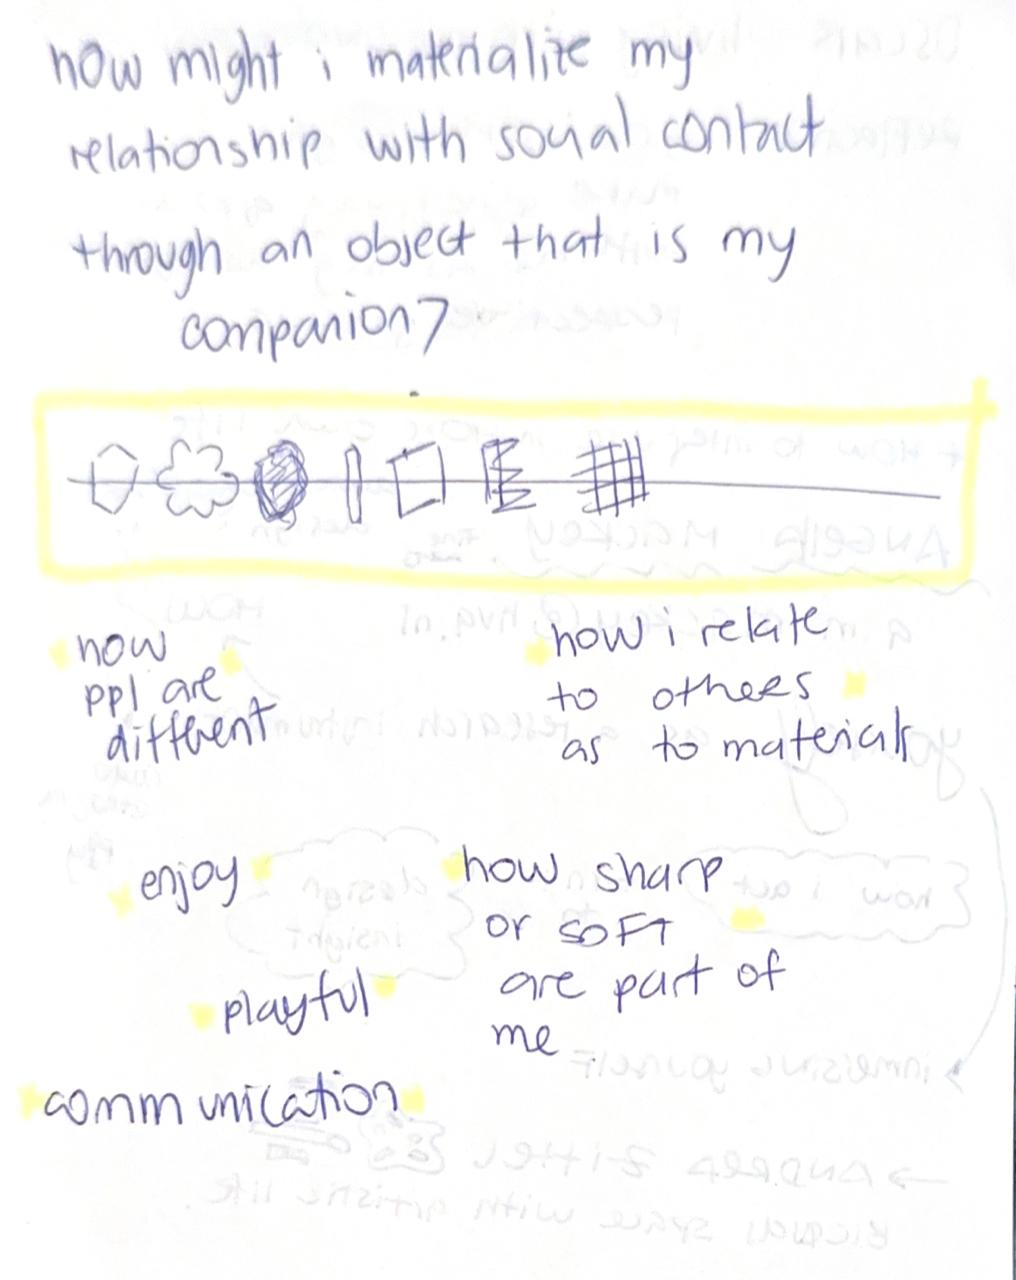 how might i materialize my
relationship with social contact
through an object that is my
companion?
how
ppl are
different
how i relate
to others
as to materials
enjoy
how sharp
or soft
are part of
me
playful
communication